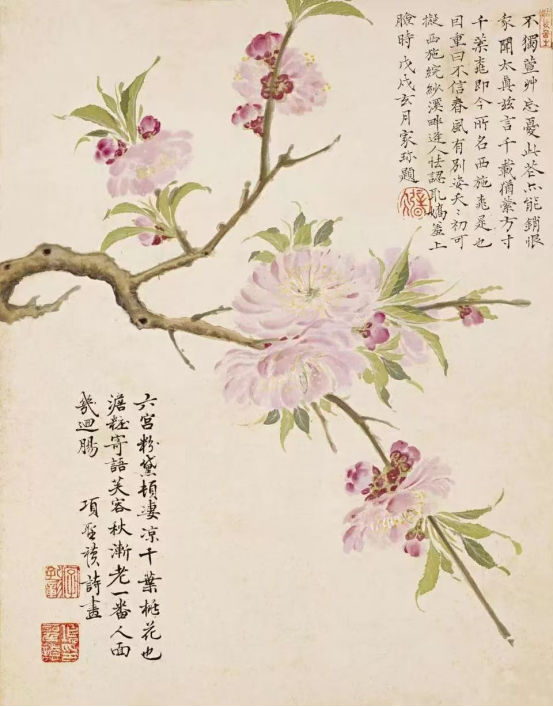 不獨萱艸忘憂此花亦能銷恨
家聞太真茲言千載猶縈方寸
千葉桃即今所名西施桃是也
因重曰不信春風有別姿夭〻初可
擬西施浣紗溪畔遊人怯認取嬌羞上
臉時戊戌玄月家珍題
六宮粉黛頓凄涼千葉桃花也
澹粧寄語芙容秋漸老一番人面
幾迴腸 項聖謨詩畫